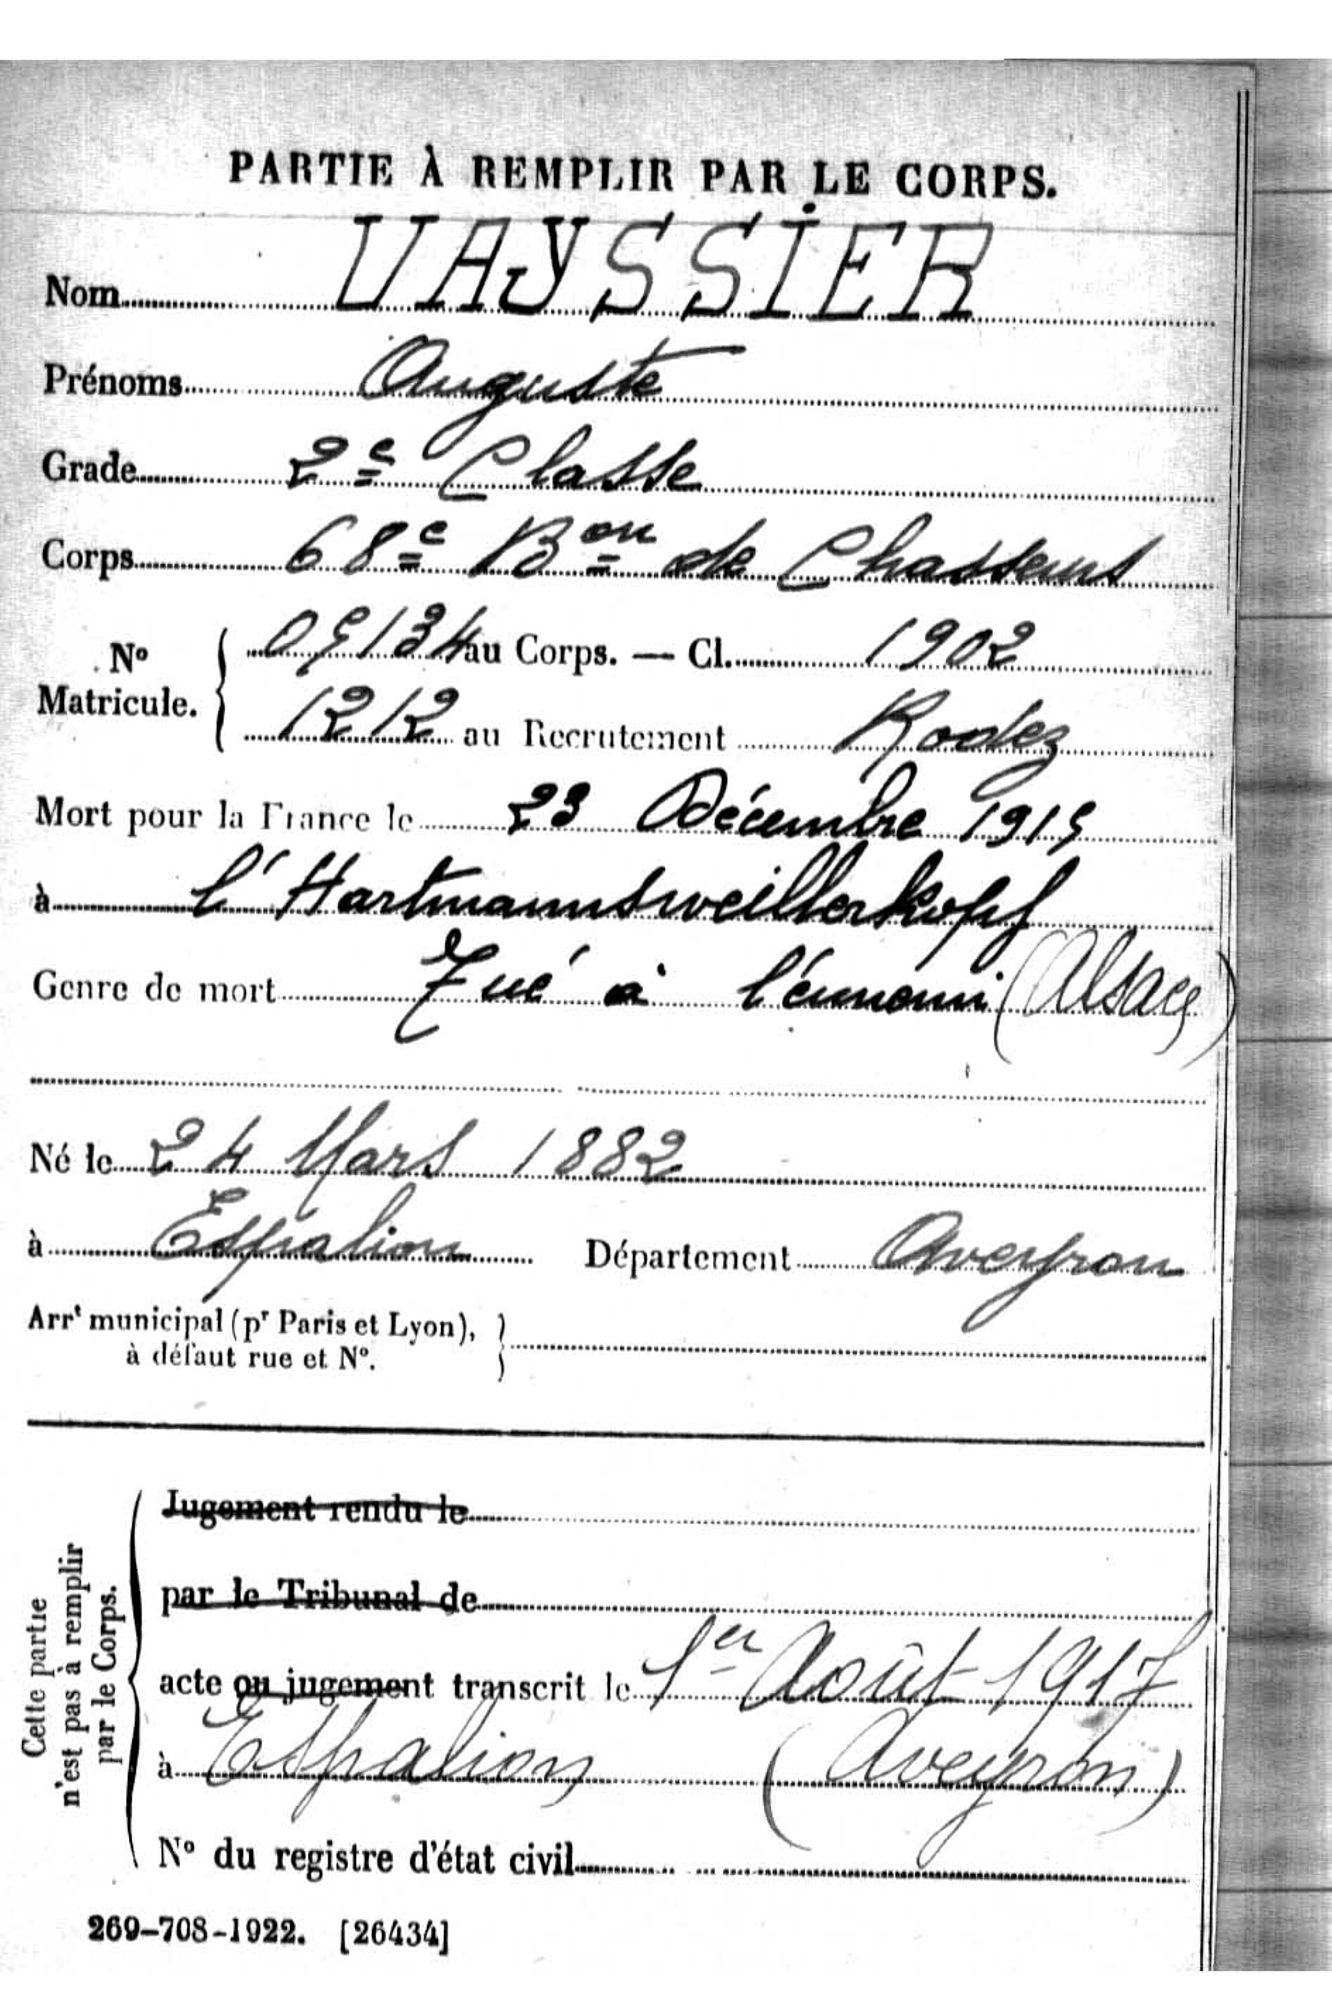 PARTIE À REMPLIR PAR LE CORPS.
Nom VAYSSIER
Prénoms Auguste
Grade 2e Classe
Corps 68e Bon de Chasseurs
No Matricule. 05134 au Corps. — Cl. 1902
1212 au Recrutement Rodez
Mort pour la France le 23 Décembre 1915
à l'Hartmannsweillerkopf
Genre de mort Tué à l'énnemi (Alsace)
Né le 24 Mars 1882
à Espalion Département Aveyron
Arrt municipal (pr Paris et Lyon),
à défaut rue et No.
Cette partie
n'est pas à remplir
par le Corps.
Jugement rendu le
par le Tribunal de
acte ou jugement transcrit le 1er Août 1917
à Espalion (Aveyron)
No du registre d'état civil
269-708-1922. [26434]